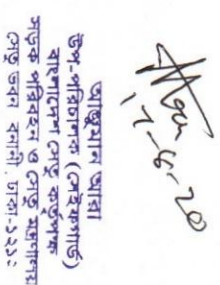 17-6-20
আঞ্জুমান আরা
উপ-পরিচালক (সেইফগার্ড)
বাংলাদেশ সেতু কর্তৃপক্ষ
সড়ক পরিবহন ও সেতু মন্ত্রণালয়
সেতু ভবন বনানী, ঢাকা-১২১২